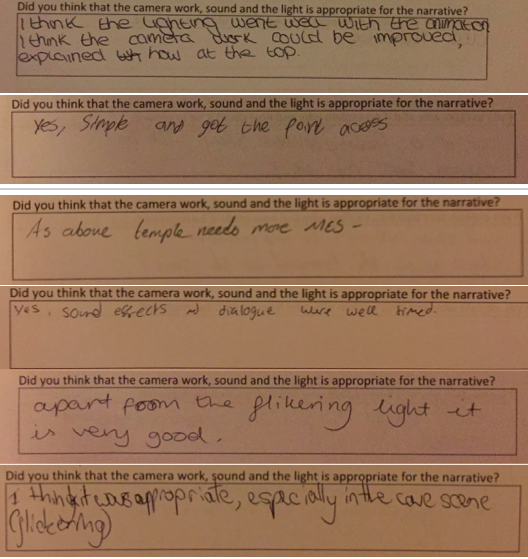 Did you think that the camera work, sound and the light is appropriate for the narrative?
I think the lighting went well with the animation
I think the camera work could be improved,
explained how at the top.
Did you think that the camera work, sound and the light is appropriate for the narrative?
Yes, Simple and get the point across
Did you think that the camera work, sound and the light is appropriate for the narrative?
As above temple needs more MES -
Did you think that the camera work, sound and the light is appropriate for the narrative?
Yes, sound effects dialogue were well timed.
Did you think that the camera work, sound and the light is appropriate for the narrative?
apart from the flikering light it
is very good.
Did you think that the camera work, sound and the light is appropriate for the narrative?
I think it was appropriate, especially in the cave scene
(flickering)